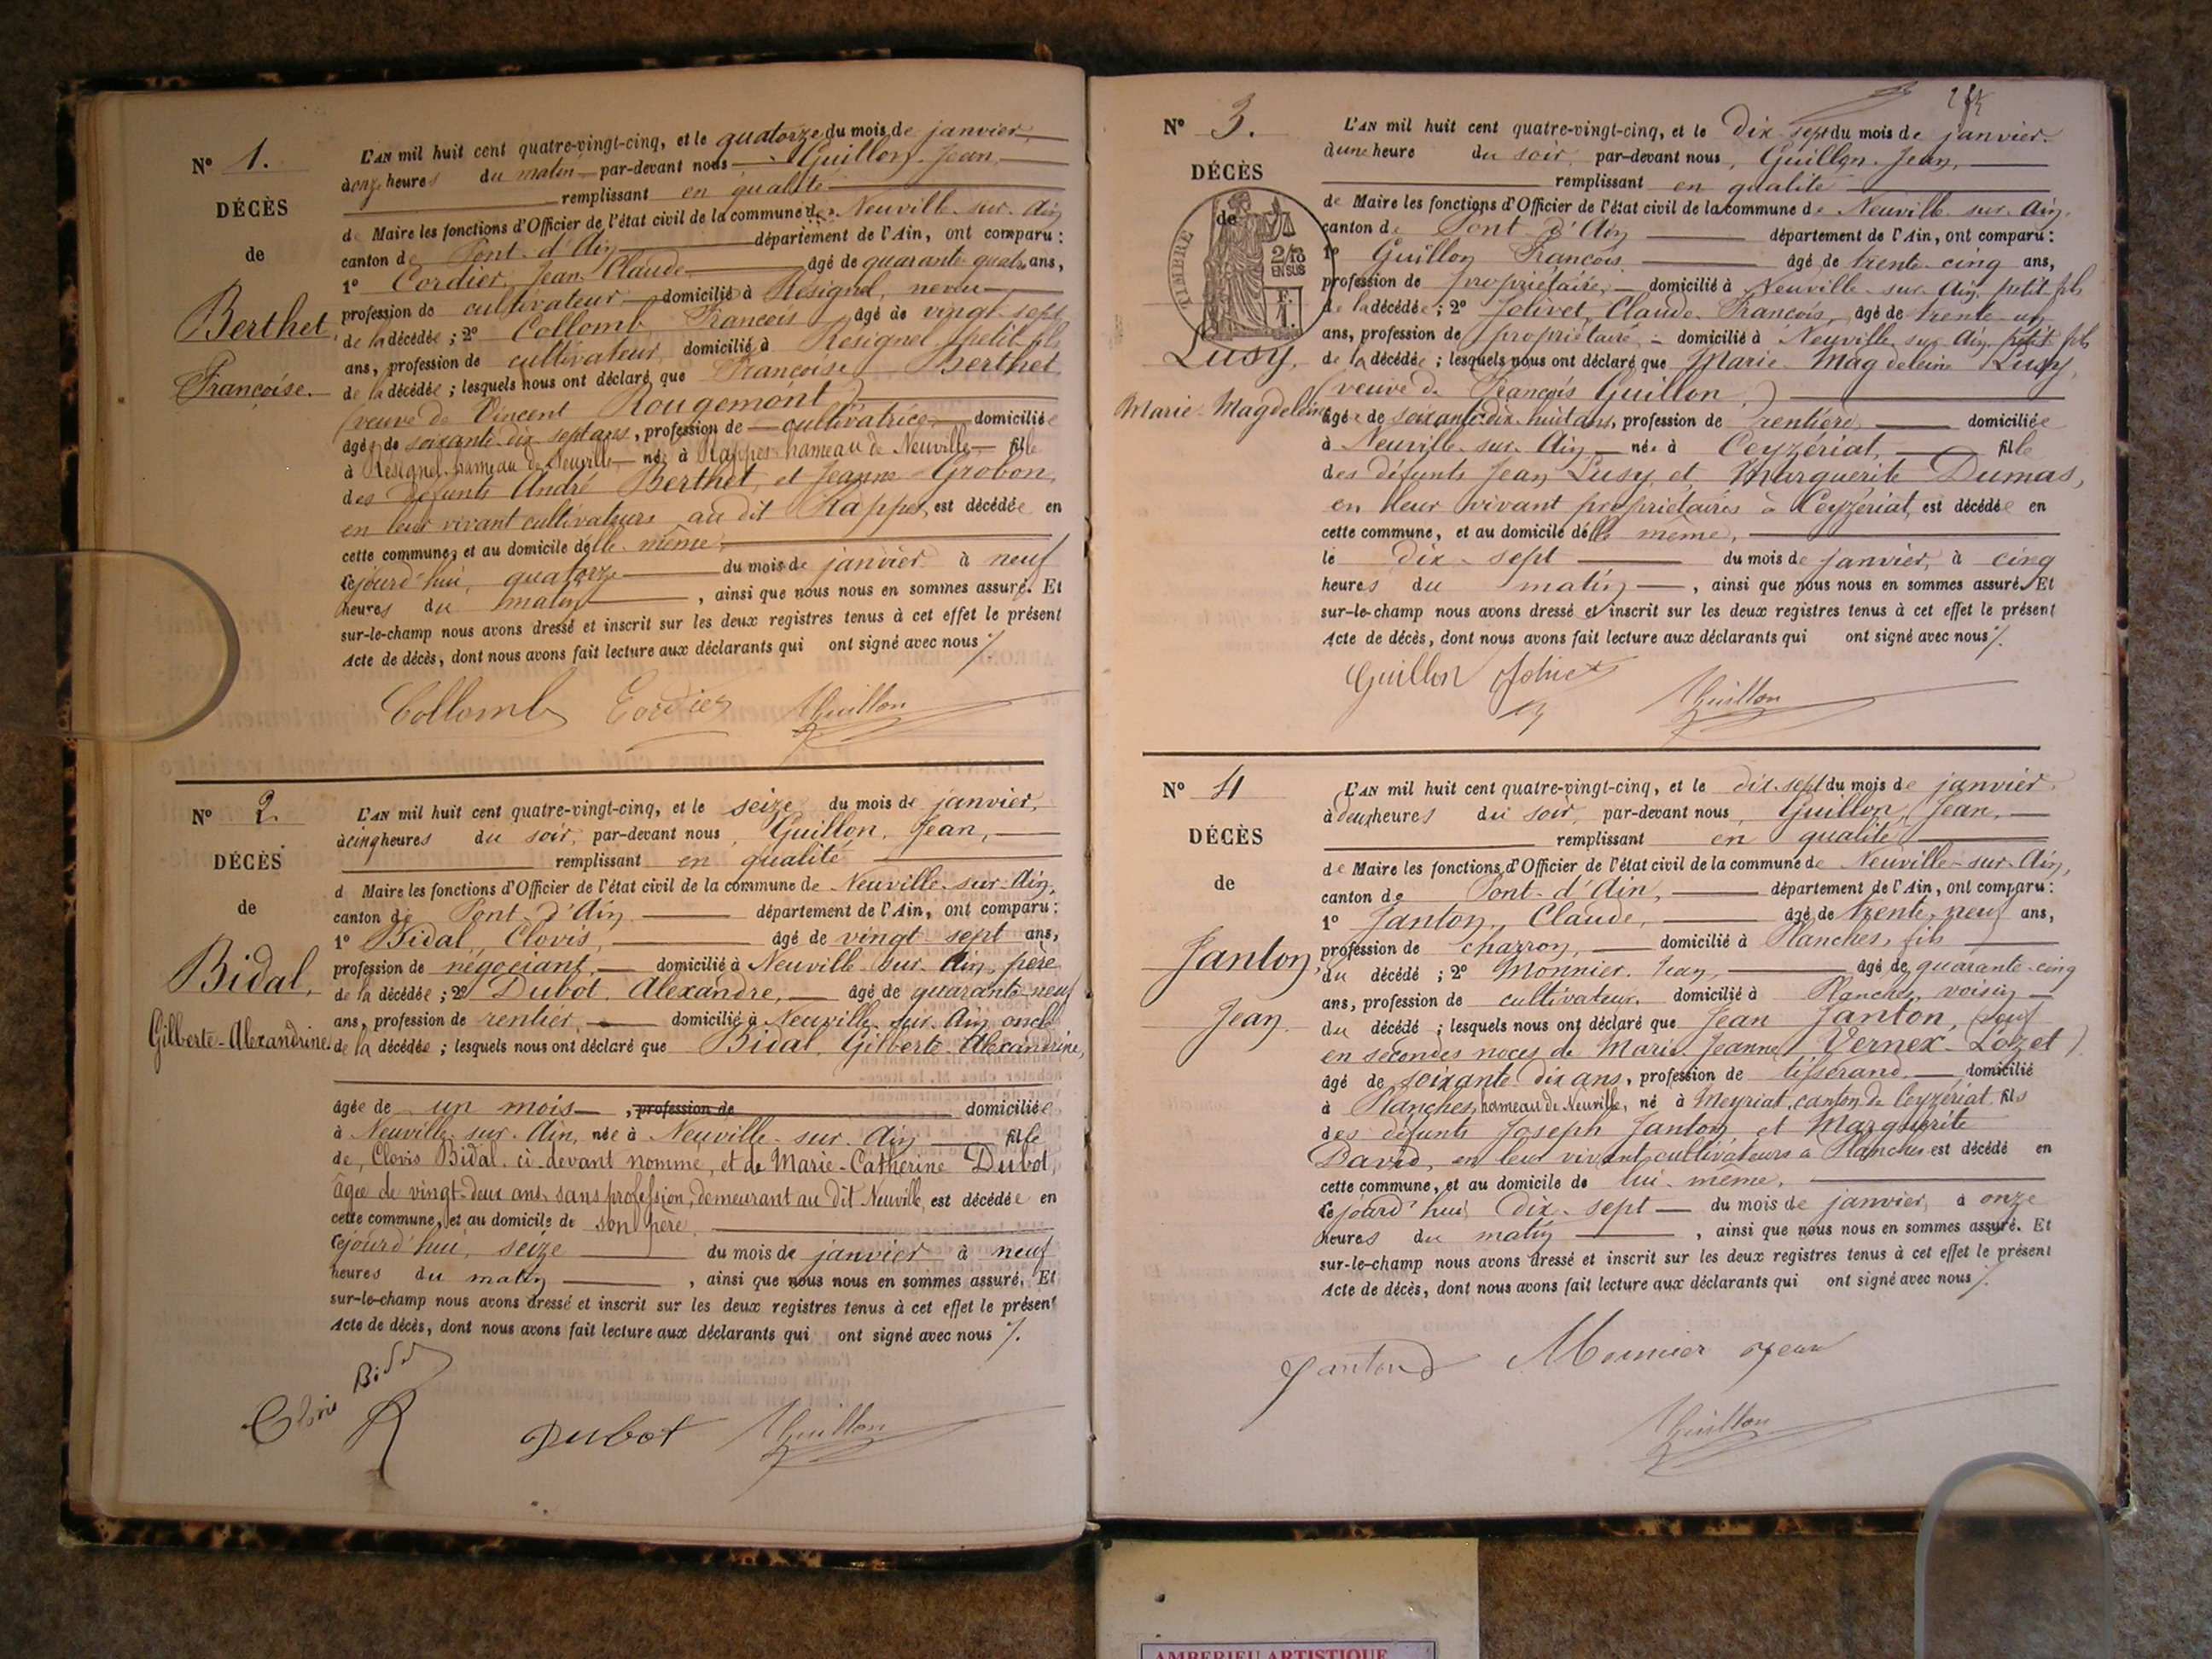 N° 1.
DÉCÈS
de
Berthet,
Françoise.
L'AN mil huit cent quatre-vingt-cinq, et le quatorze du mois de janvier,
à onze heures du matin par-devant nous Guillon, Jean,
remplissant en qualité
de Maire les fonctions d'Officier de l'état civil de la commune de Neuville-sur-Ain
canton de Pont-d'Ain département de l'Ain, ont comparu :
1° Cordier, Jean-Claude âgé de quarante quatre ans,
profession de cultivateur, domicilié à Résignel, neveu
de la décédée ; 2° Collomb, François âgé de vingt-sept
ans, profession de cultivateur, domicilié à Résignel petit fils
de la décédée ; lesquels nous ont déclaré que Françoise Berthet
(veuve de Vincent Rougemont)
âgée de soixante-dix-sept ans, profession de cultivatrice, domiciliée
à Résignel, hameau de Neuville, née à Rappes hameau de Neuville fille
des défunts André Berthet et Jeanne Grobon,
en leur vivant cultivateurs au dit Rappes, est décédée en
cette commune, et au domicile d'elle-même
cejourd'hui, quatorze du mois de janvier à neuf
heures du matin, ainsi que nous nous en sommes assuré. Et
sur-le-champ nous avons dressé et inscrit sur les deux registres tenus à cet effet le présent
Acte de décès, dont nous avons fait lecture aux déclarants qui ont signé avec nous ./.
Collomb Cordier Guillon
N° 2.
DÉCÈS
de
Bidal,
Gilberte-Alexandrine.
L'AN mil huit cent quatre-vingt-cinq, et le seize du mois de janvier,
à cinq heures du soir, par-devant nous, Guillon, Jean,
remplissant en qualité
d Maire les fonctions d'Officier de l'état civil de la commune de Neuville-sur-Ain,
canton de Pont-d'Ain département de l'Ain, ont comparu :
1° Bidal, Clovis, âgé de vingt-sept ans,
profession de négociant, domicilié à Neuville-sur-Ain, père
de la décédée ; 2° Dubot, Alexandre, âgé de quarante-neuf
ans, profession de rentier, domicilié à Neuville-sur-Ain oncle
de la décédée ; lesquels nous ont déclaré que Bidal, Gilberte-Alexandrine,
âgée de un mois, profession de domiciliée
à Neuville-sur-Ain, née à Neuville-sur-Ain fille
de, Clovis Bidal, ci-devant nommé, et de Marie-Catherine Dubot,
âgée de vingt-deux ans, sans profession, demeurant au dit Neuville, est décédée en
cette commune, et au domicile de son père,
cejourd'hui, seize du mois de janvier à neuf
heures du matin, ainsi que nous nous en sommes assuré. Et
sur-le-champ nous avons dressé et inscrit sur les deux registres tenus à cet effet le présent
Acte de décès, dont nous avons fait lecture aux déclarants qui ont signé avec nous ./.
Clovis Bidal Dubot Guillon
N° 3.
DÉCÈS
de
TIMBRE
2/10
EN SUS
Lusy,
Marie-Magdeleine
L'AN mil huit cent quatre-vingt-cinq, et le Dix-sept du mois de janvier.
d'une heure du soir, par-devant nous, Guillon, Jean,
remplissant en qualité
de Maire les fonctions d'Officier de l'état civil de la commune de Neuville-sur-Ain,
canton de Pont-d'Ain département de l'Ain, ont comparu :
1° Guillon François âgé de trente-cinq ans,
profession de propriétaire, domicilié à Neuville-sur-Ain, petit fils
de la décédée ; 2° Jolivet, Claude-François, âgé de trente un
ans, profession de propriétaire, domicilié à Neuville-sur-Ain, petit fils
de la décédée ; lesquels nous ont déclaré que Marie-Magdeleine Lusy,
(veuve de François Guillon)
âgée de soixante-dix-huit ans, profession de rentière domiciliée
à Neuville-sur-Ain, née à Ceyzériat, fille
des défunts Jean Lusy et Marguerite Dumas,
en leur vivant propriétaires à Ceyzériat, est décédée en
cette commune, et au domicile d'elle-même,
le dix-sept du mois de janvier, à cinq
heures du matin, ainsi que nous nous en sommes assuré. Et
sur-le-champ nous avons dressé et inscrit sur les deux registres tenus à cet effet le présent
Acte de décès, dont nous avons fait lecture aux déclarants qui ont signé avec nous ./.
Guillon Guillon
N° 4
DÉCÈS
de
Janton,
Jean.
L'AN mil huit cent quatre-vingt-cinq, et le dix-sept du mois de janvier
à deux heures du soir, par-devant nous, Guillon, Jean,
remplissant en qualité
de Maire les fonctions d'Officier de l'état civil de la commune de Neuville-sur-Ain,
canton de Pont-d'Ain, département de l'Ain, ont comparu :
1° Janton, Claude, âgé de trente-neuf ans,
profession de charron, domicilié à Planches, fils
du décédé ; 2° Monnier, Jean, âgé de quarante-cinq
ans, profession de cultivateur, domicilié à Planches, voisin
du décédé ; lesquels nous ont déclaré que Jean Janton, (veuf
en secondes noces de Marie-Jeanne Vernex-Lozet)
âgé de soixante-dix ans, profession de tisserand, domicilié
à Planches, hameau de Neuville, né à Meyriat, canton de Ceyzériat fils
des défunts Joseph Janton et Marguerite
David, en leur vivant cultivateurs à Planches est décédé en
cette commune, et au domicile de lui-même,
cejourd'hui dix-sept du mois de janvier, à onze
heures du matin, ainsi que nous nous en sommes assuré. Et
sur-le-champ nous avons dressé et inscrit sur les deux registres tenus à cet effet le présent
Acte de décès, dont nous avons fait lecture aux déclarants qui ont signé avec nous ./.
Janton Monnier Jean
Guillon
AMBERIEU ARTISTIQUE